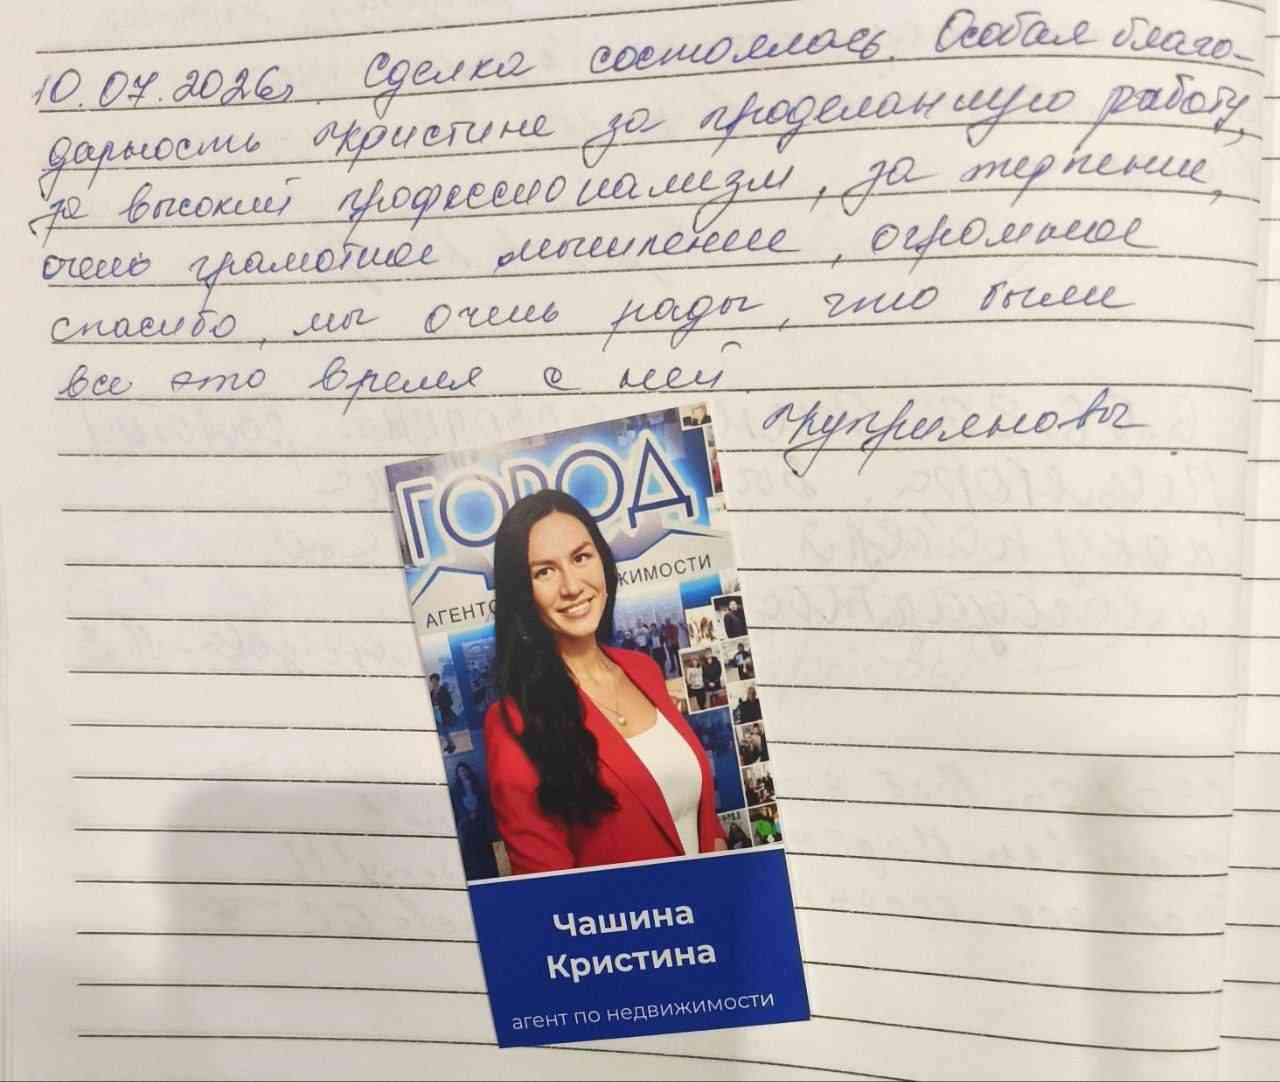 10.07.2026г. Сделка состоялась. Особая благо-
дарность Кристине за проделанную работу,
за высокий профессионализм, за терпение,
очень грамотное мышление, огромное
спасибо, мы очень рады, что были
все это время с ней.
Куприяновы
ГОРОД
АГЕНТС ЖИМОСТИ
Чашина
Кристина
агент по недвижимости